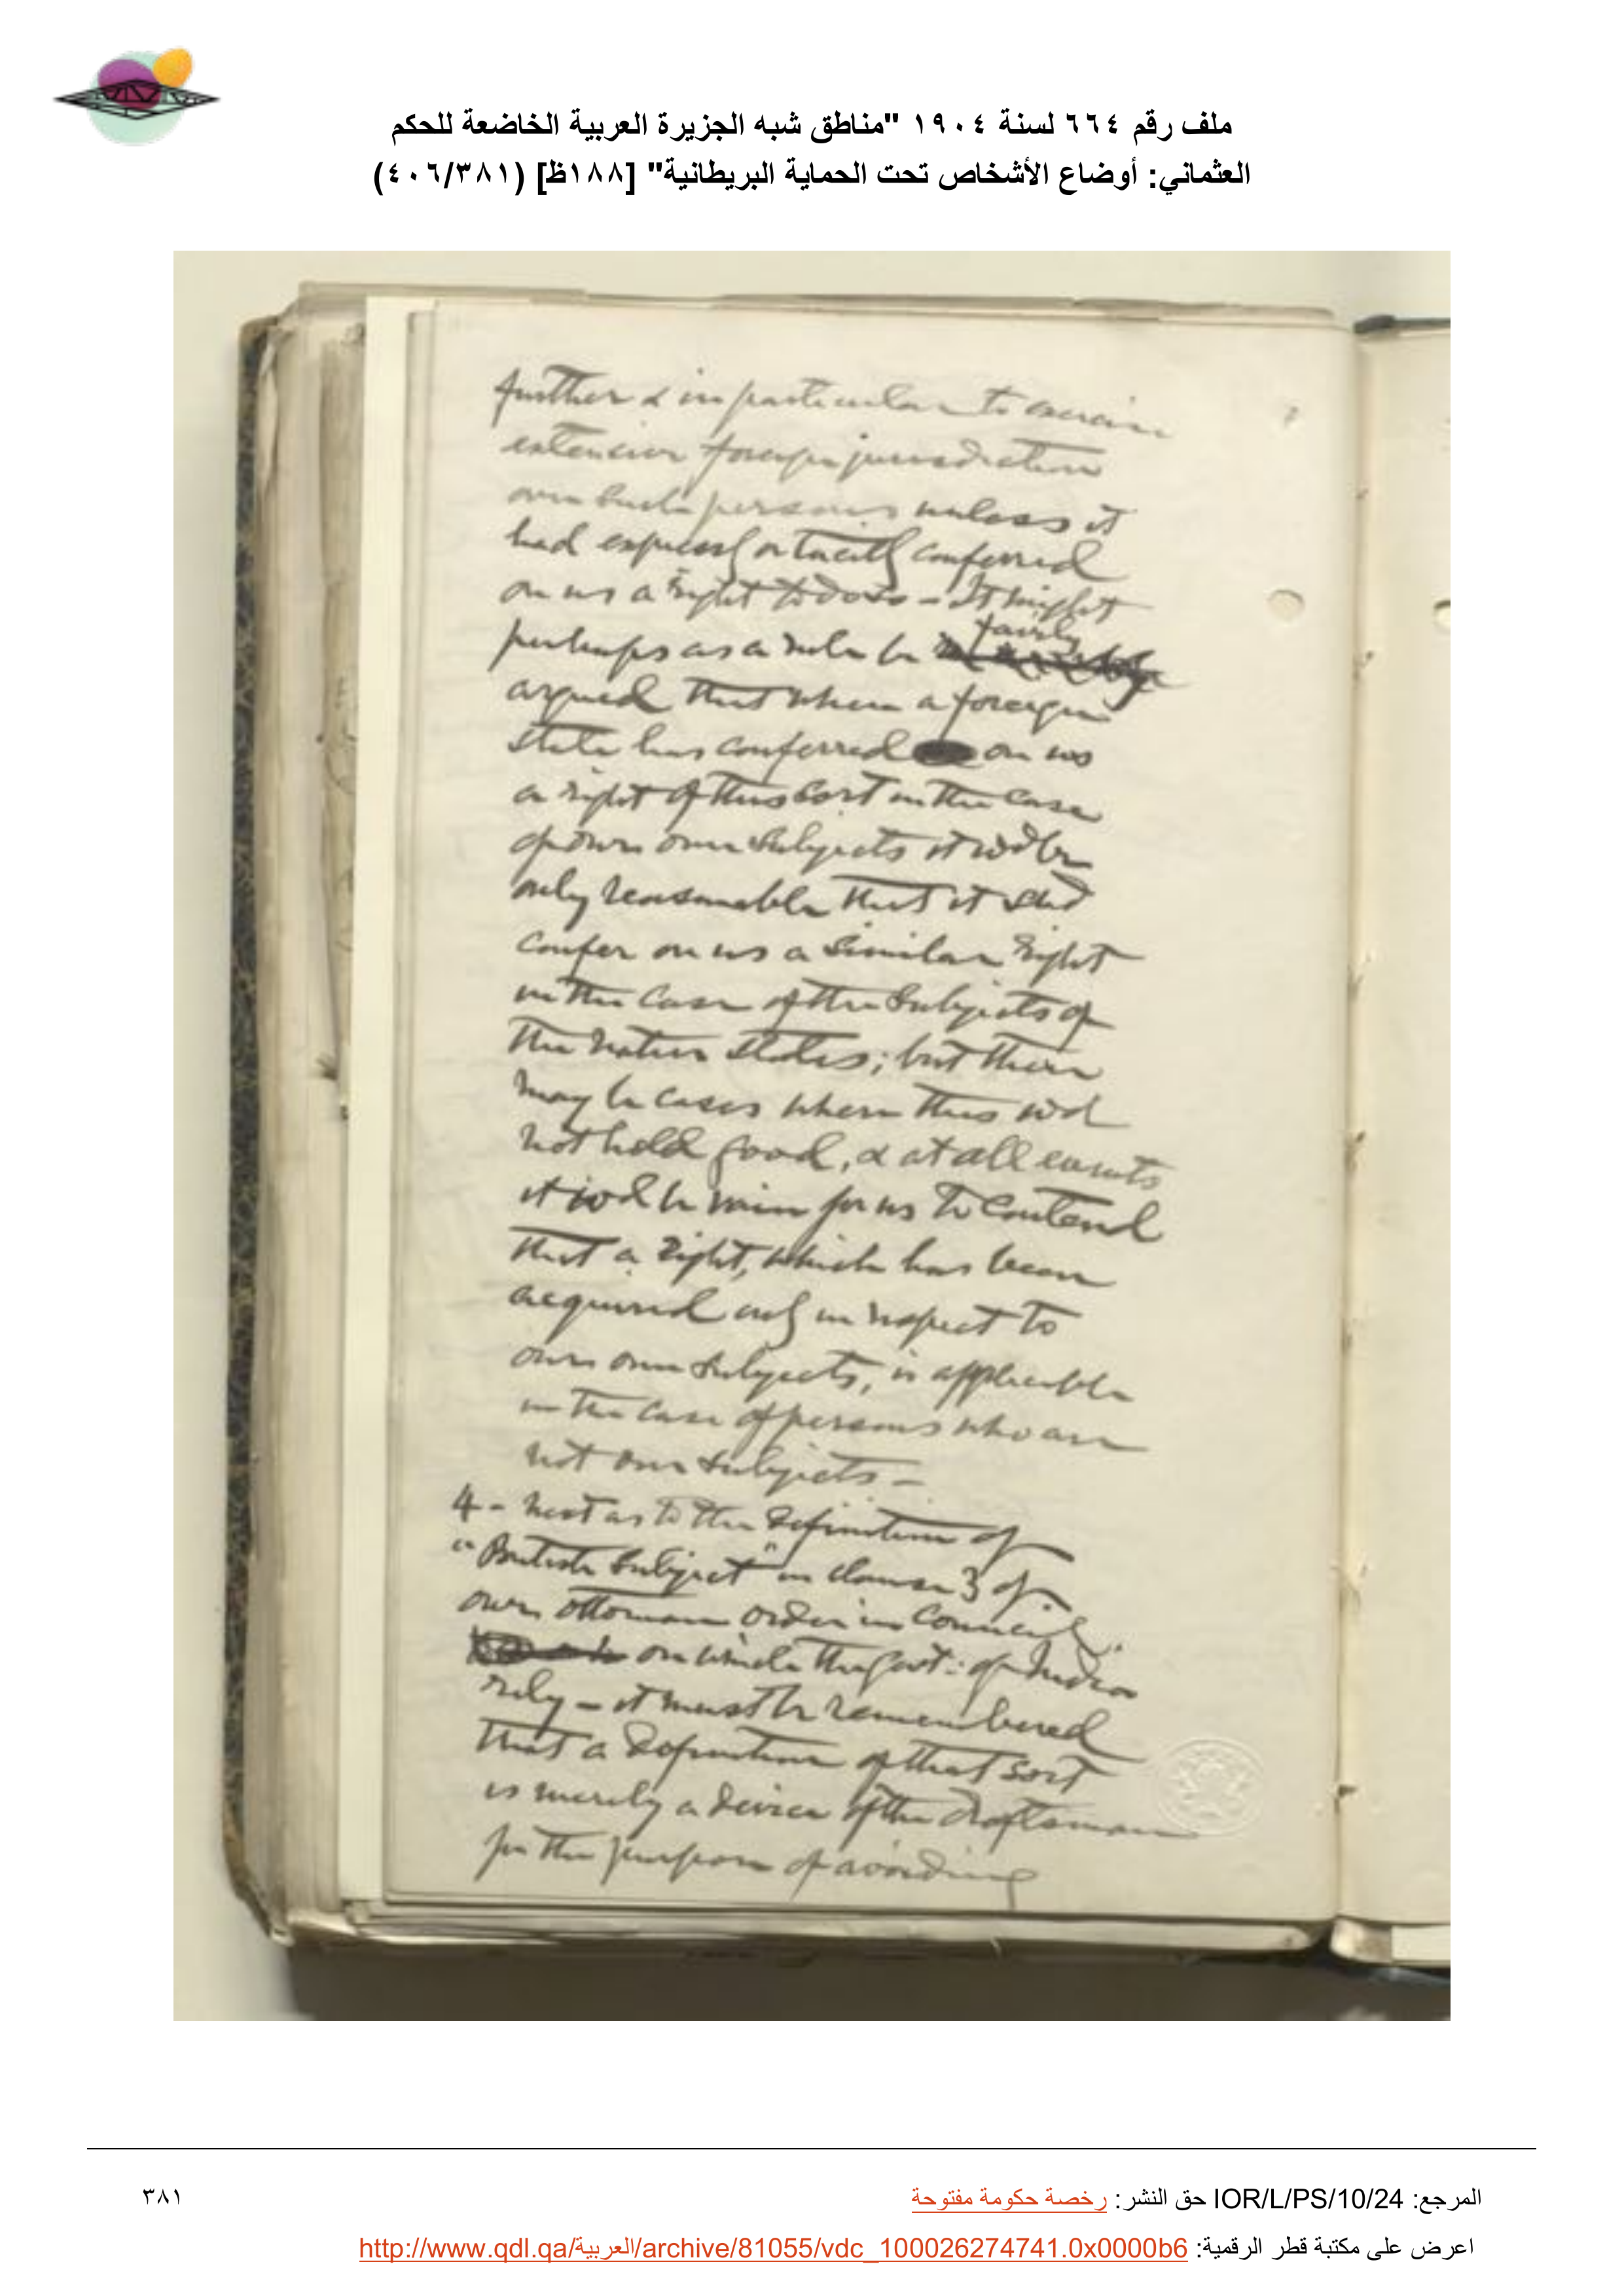 ملف رقم ٦٦٤ لسنة ١٩٠٤ "مناطق شبه الجزيرة العربية الخاضعة للحكم
العثماني: أوضاع الأشخاص تحت الحماية البريطانية" [١٨٨ظ] (٤٠٦/٣٨١)
further & in particular to exercise
extensive foreign jurisdiction
over such persons unless it
had expressly or tacitly conferred
on us a right to do so – It might
fairly
perhaps as a rule be
argued that when a foreign
state has conferred on us
a right of this sort in the case
of our own subjects it wd be
only reasonable that it shd
confer on us a similar right
in the case of the subjects of
the native states; but there
may be cases where this wd
not hold good, & at all events
it wd be vain for us to contend
that a right, which has been
acquired only in respect to
our own subjects, is applicable
in the case of persons who are
not our subjects –
4 – Next as to the definition of
"British subject" in clause 3 of
our Ottoman order in Council,
on which the Govt: of India
rely – it must be remembered
that a definition of that sort
is merely a device of the draftsman
for the purpose of avoiding
المرجع: IOR/L/PS/10/24 حق النشر: رخصة حكومة مفتوحة
٣٨١
اعرض على مكتبة قطر الرقمية: http://www.qdl.qa/العربية/archive/81055/vdc_100026274741.0x0000b6